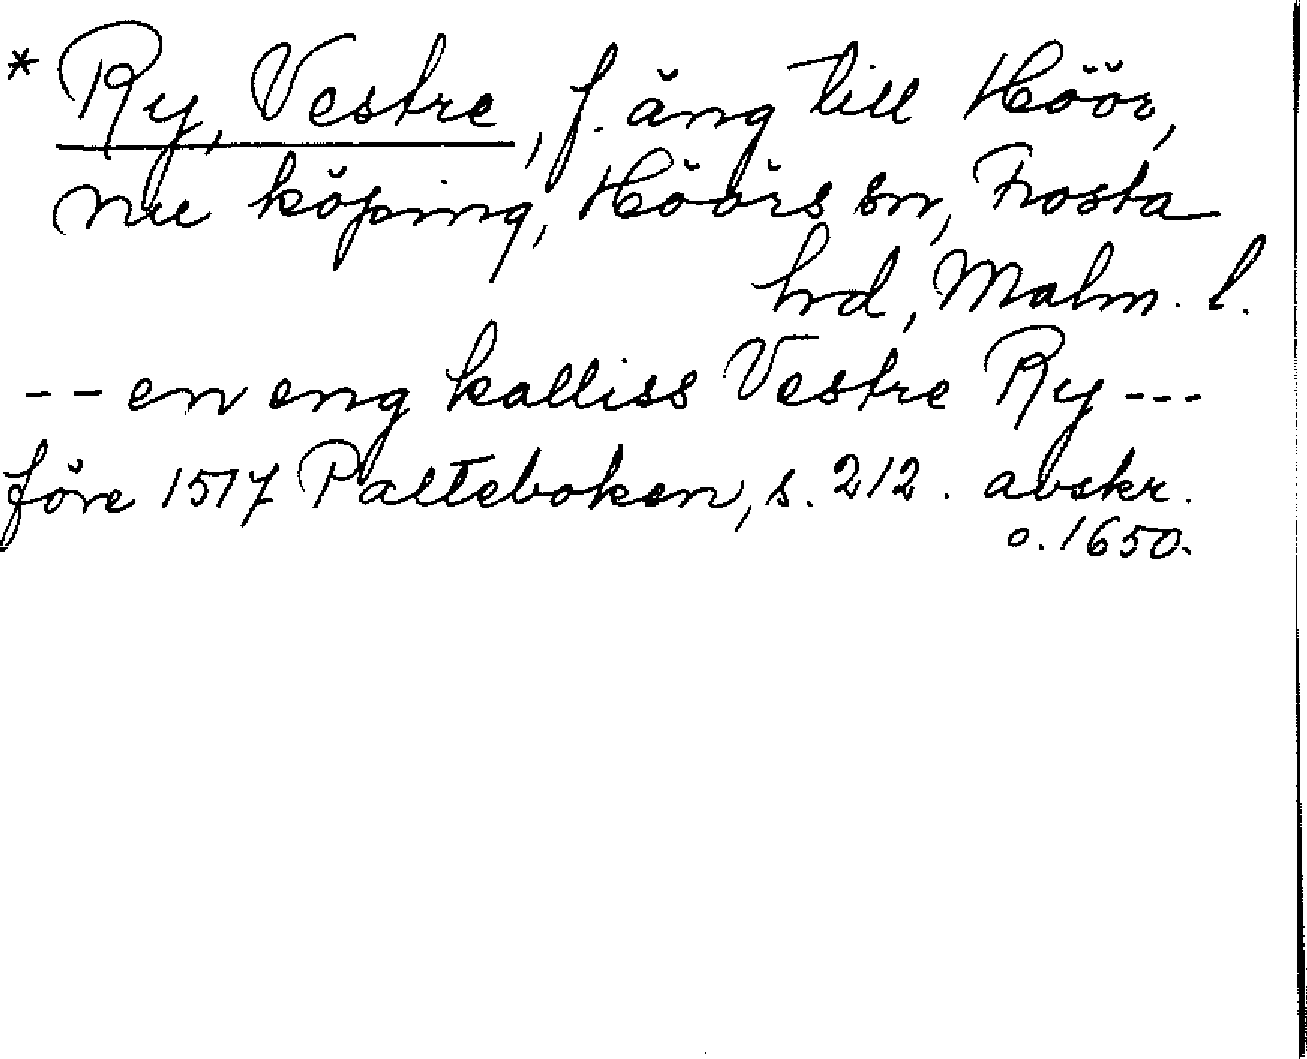 * Ry, Vestre, f. äng till Höör,
nu köping, Höörs sn, Frosta
hrd, Malm. l.
-- en eng kalliss Vestre Ry ---
före 1517 Palteboken, s. 212. avskr.
o. 1650.